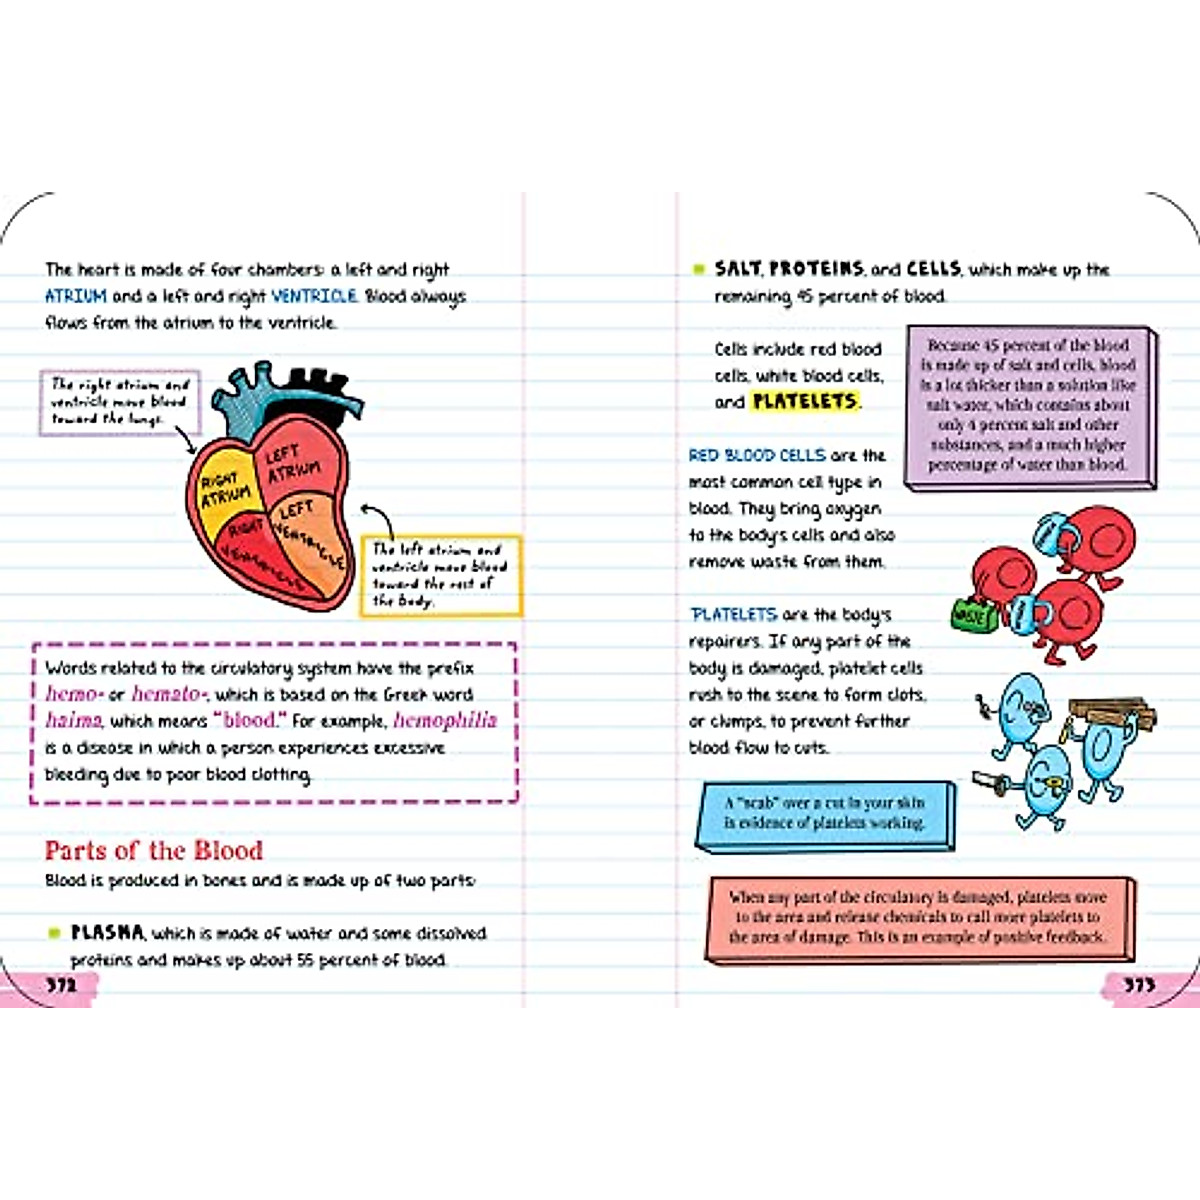 The heart is made of four chambers: a left and right
ATRIUM and a left and right VENTRICLE. Blood always
flows from the atrium to the ventricle.
The right atrium and
ventricle move blood
toward the lungs.
RIGHT
ATRIUM
LEFT
ATRIUM
RIGHT
VENTRICLE
LEFT
VENTRICLE
The left atrium and
ventricle move blood
toward the rest of
the body.
Words related to the circulatory system have the prefix
hemo- or hemato-, which is based on the Greek word
haima, which means "blood." For example, hemophilia
is a disease in which a person experiences excessive
bleeding due to poor blood clotting.
Parts of the Blood
Blood is produced in bones and is made up of two parts:
PLASMA, which is made of water and some dissolved
proteins and makes up about 55 percent of blood.
372
SALT, PROTEINS, and CELLS, which make up the
remaining 45 percent of blood.
Cells include red blood
cells, white blood cells,
and PLATELETS.
Because 45 percent of the blood
is made up of salt and cells, blood
is a lot thicker than a solution like
salt water, which contains about
only 4 percent salt and other
substances, and a much higher
percentage of water than blood.
RED BLOOD CELLS are the
most common cell type in
blood. They bring oxygen
to the body's cells and also
remove waste from them.
WASTE
PLATELETS are the body's
repairers. If any part of the
body is damaged, platelet cells
rush to the scene to form clots,
or clumps, to prevent further
blood flow to cuts.
A "scab" over a cut in your skin
is evidence of platelets working.
When any part of the circulatory is damaged, platelets move
to the area and release chemicals to call more platelets to
the area of damage. This is an example of positive feedback.
373